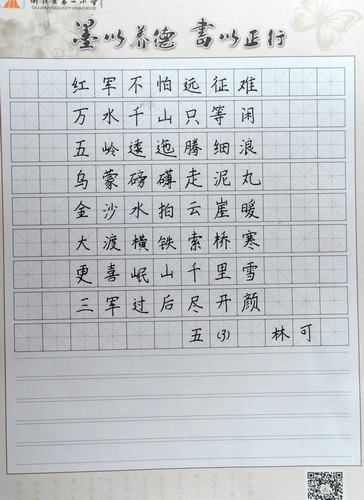 衢江区第一小学
QUJIANGQUDIYIXIAOXUE
墨以养德 書以正行
红军不怕远征难
万水千山只等闲
五岭逶迤腾细浪
乌蒙磅礴走泥丸
金沙水拍云崖暖
大渡横铁索桥寒
更喜岷山千里雪
三军过后尽开颜
五(3) 林可